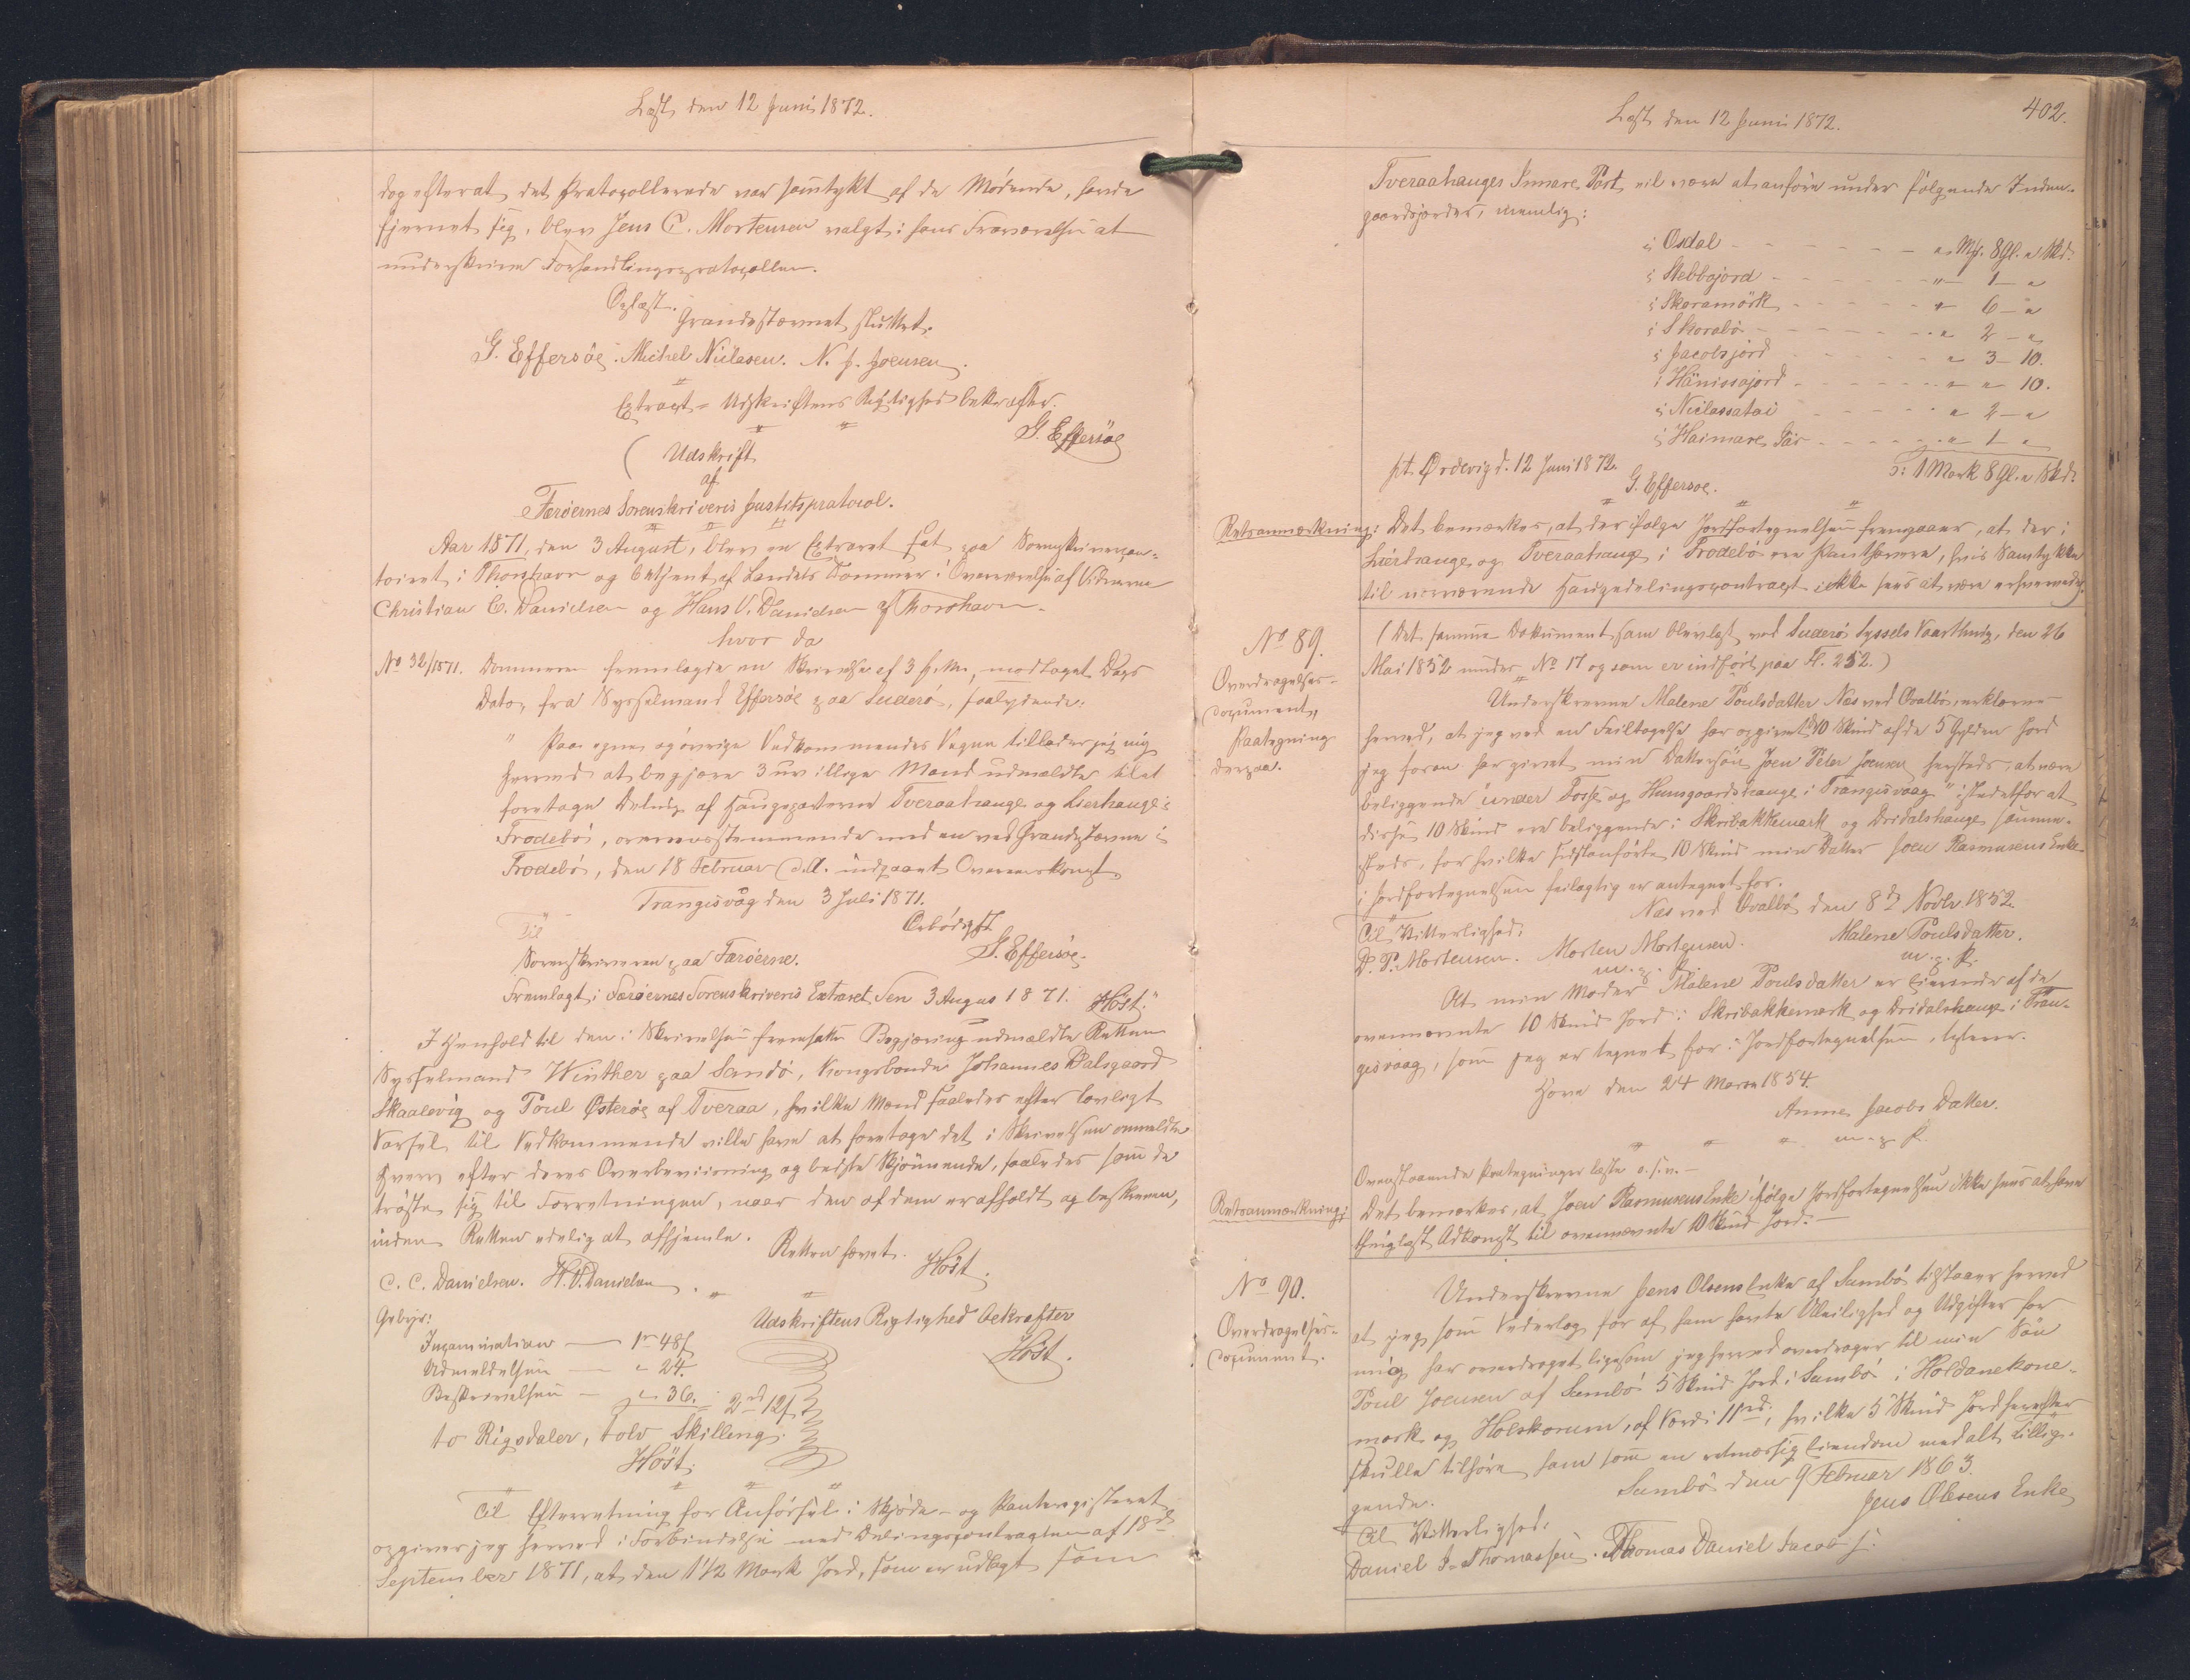 Læst den 12 Juni 1872.
dog efterat det Protocollerede var samtykt af de Mødende, havde
fjernet sig, blev Jens C. Mortensen valgt i hans Fraværelse at
underskrive Forhandlingsprotocollen.
Oplæst.
Grandestævnet sluttet.
G. Effersøe. Michel Niclasen. N. J. Joensen.
Extract-Udskriftens Rigtighed bekræfter.
G. Effersöe
( Udskrift
af
Færöernes Sorenskriveris Justitsprotocol.
Aar 1871, den 3 August, blev en Extraret sat paa Sorenskrivercon-
toiret i Thorshavn og betjent af Landets Dommer i Overværelse af Vidnerne
Christian C. Danielsen og Hans V. Danielsen af Thorshavn.
hvor da
No 32/1871. Dommeren fremlagde en Skrivelse af 3 f. M., modtaget Dags
Dato, fra Sysselmand Effersöe paa Suderö, saalydende:
" Paa egne og övrige Vedkommendes Vegne tillader jeg mig
herved at begjære 3 uvillige Mænd udmeldte til at
foretage Deling af Haugeparterne Tveraahauge og Lierhauge i
Frodebö, overensstemmende med en ved Grandestævne i
Frodebö, den 18 Februar d. A. indgaaet Overenskomst
Trangisvaag den 3 Juli 1871.
Ærbödigst
G. Effersöe.
Til
Sorenskriveren paa Færöerne.
Fremlagt i Færöernes Sorenskriveris Extraret den 3 August 1871. Höst."
I Henhold til den i Skrivelsen fremsatte Begjæring udmeldte Retten
Sysselmand Winther paa Sandö, Kongsbonde Johannes Dalsgaard
Skaalevig og Poul Østerøe af Tveraa, hvilke Mænd saaledes efter lovligt
Varsel til Vedkommende ville have at foretage det i Skrivelsen ommeldte
Hverv efter deres Overbeviisning og bedste Skjönnende, saaledes som de
tröste sig til Forretningen, naar den af dem er afholdt og beskreven,
inden Retten edelig at afhjemle. Retten hævet.
Höst.
C. C. Danielsen. H. V. Danielsen.
Udskriftens Rigtighed bekræfter
Höst.
Gebyr:
Incamination — 1 48 s
Udmeldelsen — " 24.
Beskrivelsen — " 36. = 2 rd 12 s
to Rigsdaler, tolv Skilling.
Höst.
Til Efterretning for Anförsel i Skjöde- og Panteregisteret
opgiver jeg herved i Forbindelse med Delingscontracten af 18de
September 1871, at den 1 1/2 Mark Jord, som er udlagt som
Læst den 12 Juni 1872.
402.
Tveraahauges Innare Part, vil være at anföre under fölgende Inden-
gaardsjorder, nemlig:
i Oxdal - - - " Mk. 8 Gl. " Skd.
i Stebbajord - - - " 1 — "
i Skoramörk - - - " 6 — "
i Skorabö - - - " 2 — "
i Jacobsjord - - - " 3 — 10.
i Hönissajord - - - " " 10.
i Niclassatai - - - " 2 — "
i Haimare Gär - - - " 1 "
ɔ: 1 Mark 8 Gl. " Skd.
pt. Ördevig d. 12 Juni 1872.
G. Effersöe.
Retsanmærkning: Det bemærkes, at der ifølge Jordfortegnelsen fremgaaer, at der i
Lierhauge og Tveraahauge i Frodebö ere Panthavere, hvis Samtykke
til nærværende Haugedelingscontract ikke sees at være erhvervede.
No 89.
Overdragelses-
document,
Paategning
derpaa.
( Det samme Dokument som blev læst ved Suderö Syssels Vaarthing, den 26
Mai 1852 under No 17 og som er indført paa Fl. 252.)
Underskrevne Malene Poulsdatter Næs ved Qvalbö, erklærer
herved, at jeg ved en Feiltagelse har opgivet, 10 Skind af de 5 Gylden Jord
jeg foran har givet min Dattersön Joen Peter Joensen hersteds, at være
beliggende "under Fosse og Huusgaardshauge i Trangisvaag" istedetfor at
disse 10 Skind ere beliggende i Skribakkemark og Dridalshauge samme-
steds, for hvilke sidstanförte 10 Skind min Datter Joen Rasmusens Enke
i Jordfortegnelsen feilagtig er antegnet for.
Næs ved Qvalbö den 8de Novbr 1852.
Til Vitterlighed:
Malene Poulsdatter.
D. P. Mortensen. Morten Mortensen.
m. p. P.
m. p. P.
At min Moder Malene Poulsdatter er Eierinde af de
ovennævnte 10 Skind Jord i Skribakkemark og Dridalshauge i Tran-
gisvaag, som jeg er tegnet for i Jordfortegnelsen, tilstaaer.
Hove den 24 Marts 1854.
Anne Jacobs Datter.
m. p. P.
Ovenstaaende Paategninger læste o. s. v. —
Retsanmærkning: Det bemærkes, at Joen Rasmusens Enke ifölge Jordfortegnelsen ikke sees at have
thinglæst Adkomst til ovennævnte 10 Skind Jord. —
No 90.
Overdragelses-
document.
Underskrevne Jens Olsens Enke af Sumbö tilstaaer herved
at jeg som Vederlag for af ham havte Uleilighed og Udgifter for
mig har overdraget ligesom jeg herved overdrager til min Sön
Poul Joensen af Sumbö 5 Skind Jord i Sumbö i Holdanekone-
mark og Holskorum, af Værdi 11 rd., hvilke 5 Skind Jord herefter
skulle tilhöre ham som en retmæssig Eiendom med alt tillig-
gende.
Sumbö den 9 Februar 1863.
Jens Olesens Enke
Til Vitterlighed:
Daniel J. Thomassen. Thomas Daniel Jacob S.